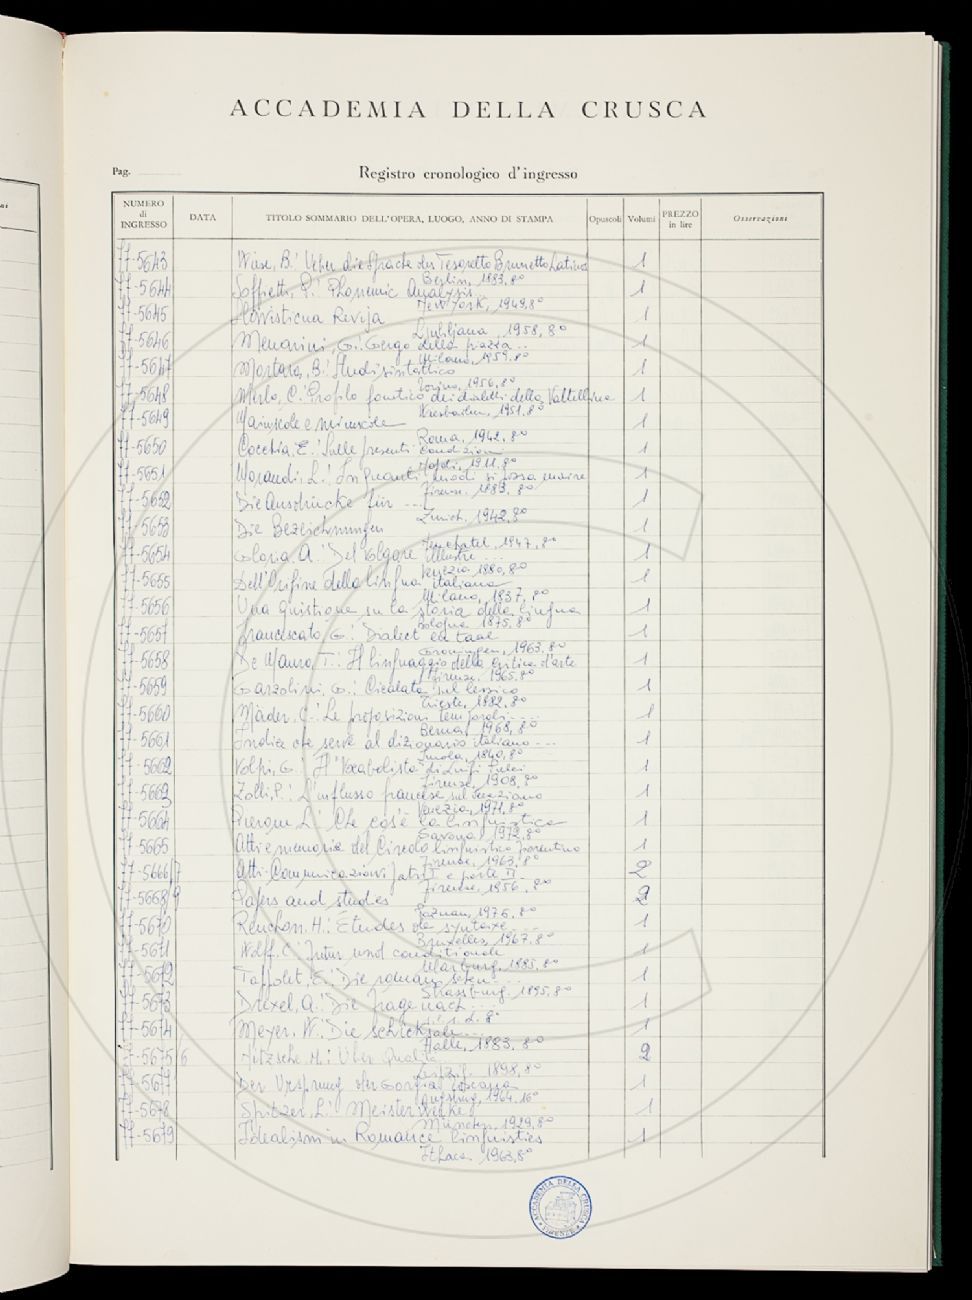 ACCADEMIA DELLA CRUSCA
Pag. Registro cronologico d'ingresso
NUMERO di INGRESSO DATA TITOLO SOMMARIO DELL'OPERA, LUOGO, ANNO DI STAMPA Opuscoli Volumi PREZZO in lire Osservazioni
77-5643 Wiese, B.: Ueber die Sprache des Tesoretto Brunetto Latinos 1
Berlin, 1883, 8°
77-5644 Soffietti, P.: Phonemic Analysis 1
New York, 1949, 8°
77-5645 Slavisticna Revija 1
Ljubljana, 1958, 8°
77-5646 Menarini, G.: Gergo della piazza .. 1
Milano, 1959, 8°
77-5647 Mortara, B.: Studi 1
Torino, 1956, 8°
77-5648 Merlo, C.: Profilo fonetico dei dialetti della Valtellina 1
Wiesbaden, 1951, 8°
77-5649 Maiuscole e minuscole 1
Roma, 1942, 8°
77-5650 Cocchia, E.: Sulle presenti condizioni 1
Napoli, 1911, 8°
77-5651 Morandi, L.: In quanti modi si possa morire 1
Firenze, 1883, 8°
77-5652 Die Ausdrücke für ... 1
Zürich, 1942, 8°
77-5653 Die Bezeichnungen 1
Neuchatel, 1947, 8°
77-5654 Gloria, A.: Del Volgare illustre ... 1
Venezia, 1880, 8°
77-5655 Dell'Origine della lingua italiana 1
Milano, 1837, 8°
77-5656 Una quistione su la storia della lingua 1
Bologna 1875, 8°
77-5657 Francescato, G.: Dialect en taal 1
Groningen, 1963, 8°
77-5658 De Mauro, T.: Il linguaggio della critica d'arte 1
Firenze, 1965, 8°
77-5659 Garzolini, G.: Cicalata sul lessico 1
Trieste, 1882, 8°
77-5660 Mäder, C.: Le proposizioni temporali ... 1
Berna, 1968, 8°
77-5661 Indice che serve al dizionario italiano --- 1
Imola, 1840, 8°
77-5662 Volpi, G.: Il Vocabolista di Luigi Pulci 1
Firenze, 1908, 8°
77-5663 Zolli, P.: L'influsso francese sul veneziano 1
Venezia, 1971, 8°
77-5664 L.: Che cos'è la linguistica 1
Savona, 1972, 8°
77-5665 Atti e memorie del Circolo linguistico fiorentino 1
Firenze, 1963, 8°
77-5666/7 Atti. Comunicazioni parte I e parte II 2
Firenze, 1956, 8°
77-5668/9 Papers and studies 2
Poznan, 1976, 8°
77-5670 Renchon, H.: Études de syntaxe 1
Bruxelles, 1967, 8°
77-5671 Wolff, C.: Futur und conditionale 1
Marburg, 1885, 8°
77-5672 Tappolet, E.: Die romanischen ... 1
Strassburg, 1895, 8°
77-5673 Drexel, A.: Die Frage nach ... 1
s.l. s.d. 8°
77-5674 Meyer, W.: Die Schicksale ... 1
Halle, 1883, 8°
77-5675/6 Nitzsche, M.: Über Qualit 2
Leipzig, 1898, 8°
77-5677 Der Ursprung der Gorgia Toscana 1
Augsburg, 1964, 16°
77-5678 Spitzer, L.: Meisterwerke 1
München, 1929, 8°
77-5679 Idealism in Romance linguistics 1
Ithaca 1963, 8°
ACCADEMIA DELLA CRUSCA FIRENZE